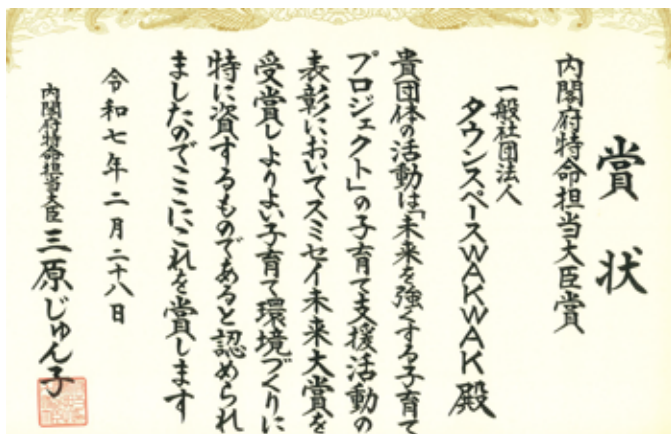 賞状
内閣府特命担当大臣賞
一般社団法人
タウンスペースWAKWAK 殿
貴団体の活動は「未来を強くする子育て
プロジェクト」の子育て支援活動の
表彰においてスミセイ未来大賞を
受賞しよりよい子育て環境づくりに
特に資するものであると認められ
ましたのでここにこれを賞します
令和七年二月二十八日
内閣府特命担当大臣 三原じゅん子